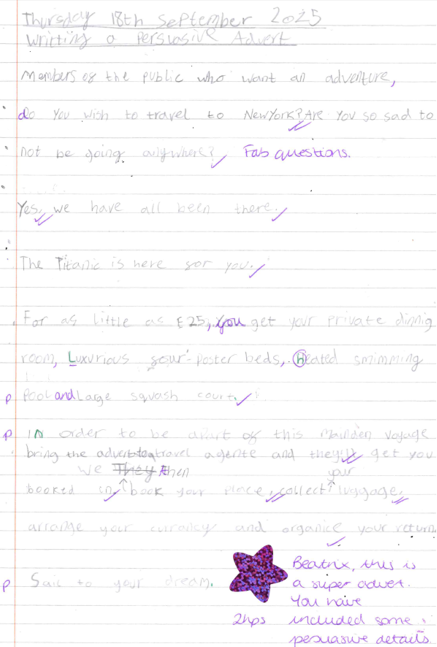 Thursday 18th September 2025
Writting a Persuasive Advert
Members of the public who want an adventure,
do you wish to travel to New York? Are you so sad to
not be going anywhere? Fab questions.
Yes, we have all been there.
The Titanic is here for you.
For as little as £25, you get your private dining
room, Luxurious four-poster beds, Heated swimming
P Pool and Large squash court.
P In order to be apart of this Mainden voyage
bring the advert to a travel agente and they'll get you
booked in, We then book your place, collect your luggage,
arrange your currency and organise your return.
P Sail to your dream.
Beatrix, this is
a super advert.
You have
2hps included some
persuasive details.